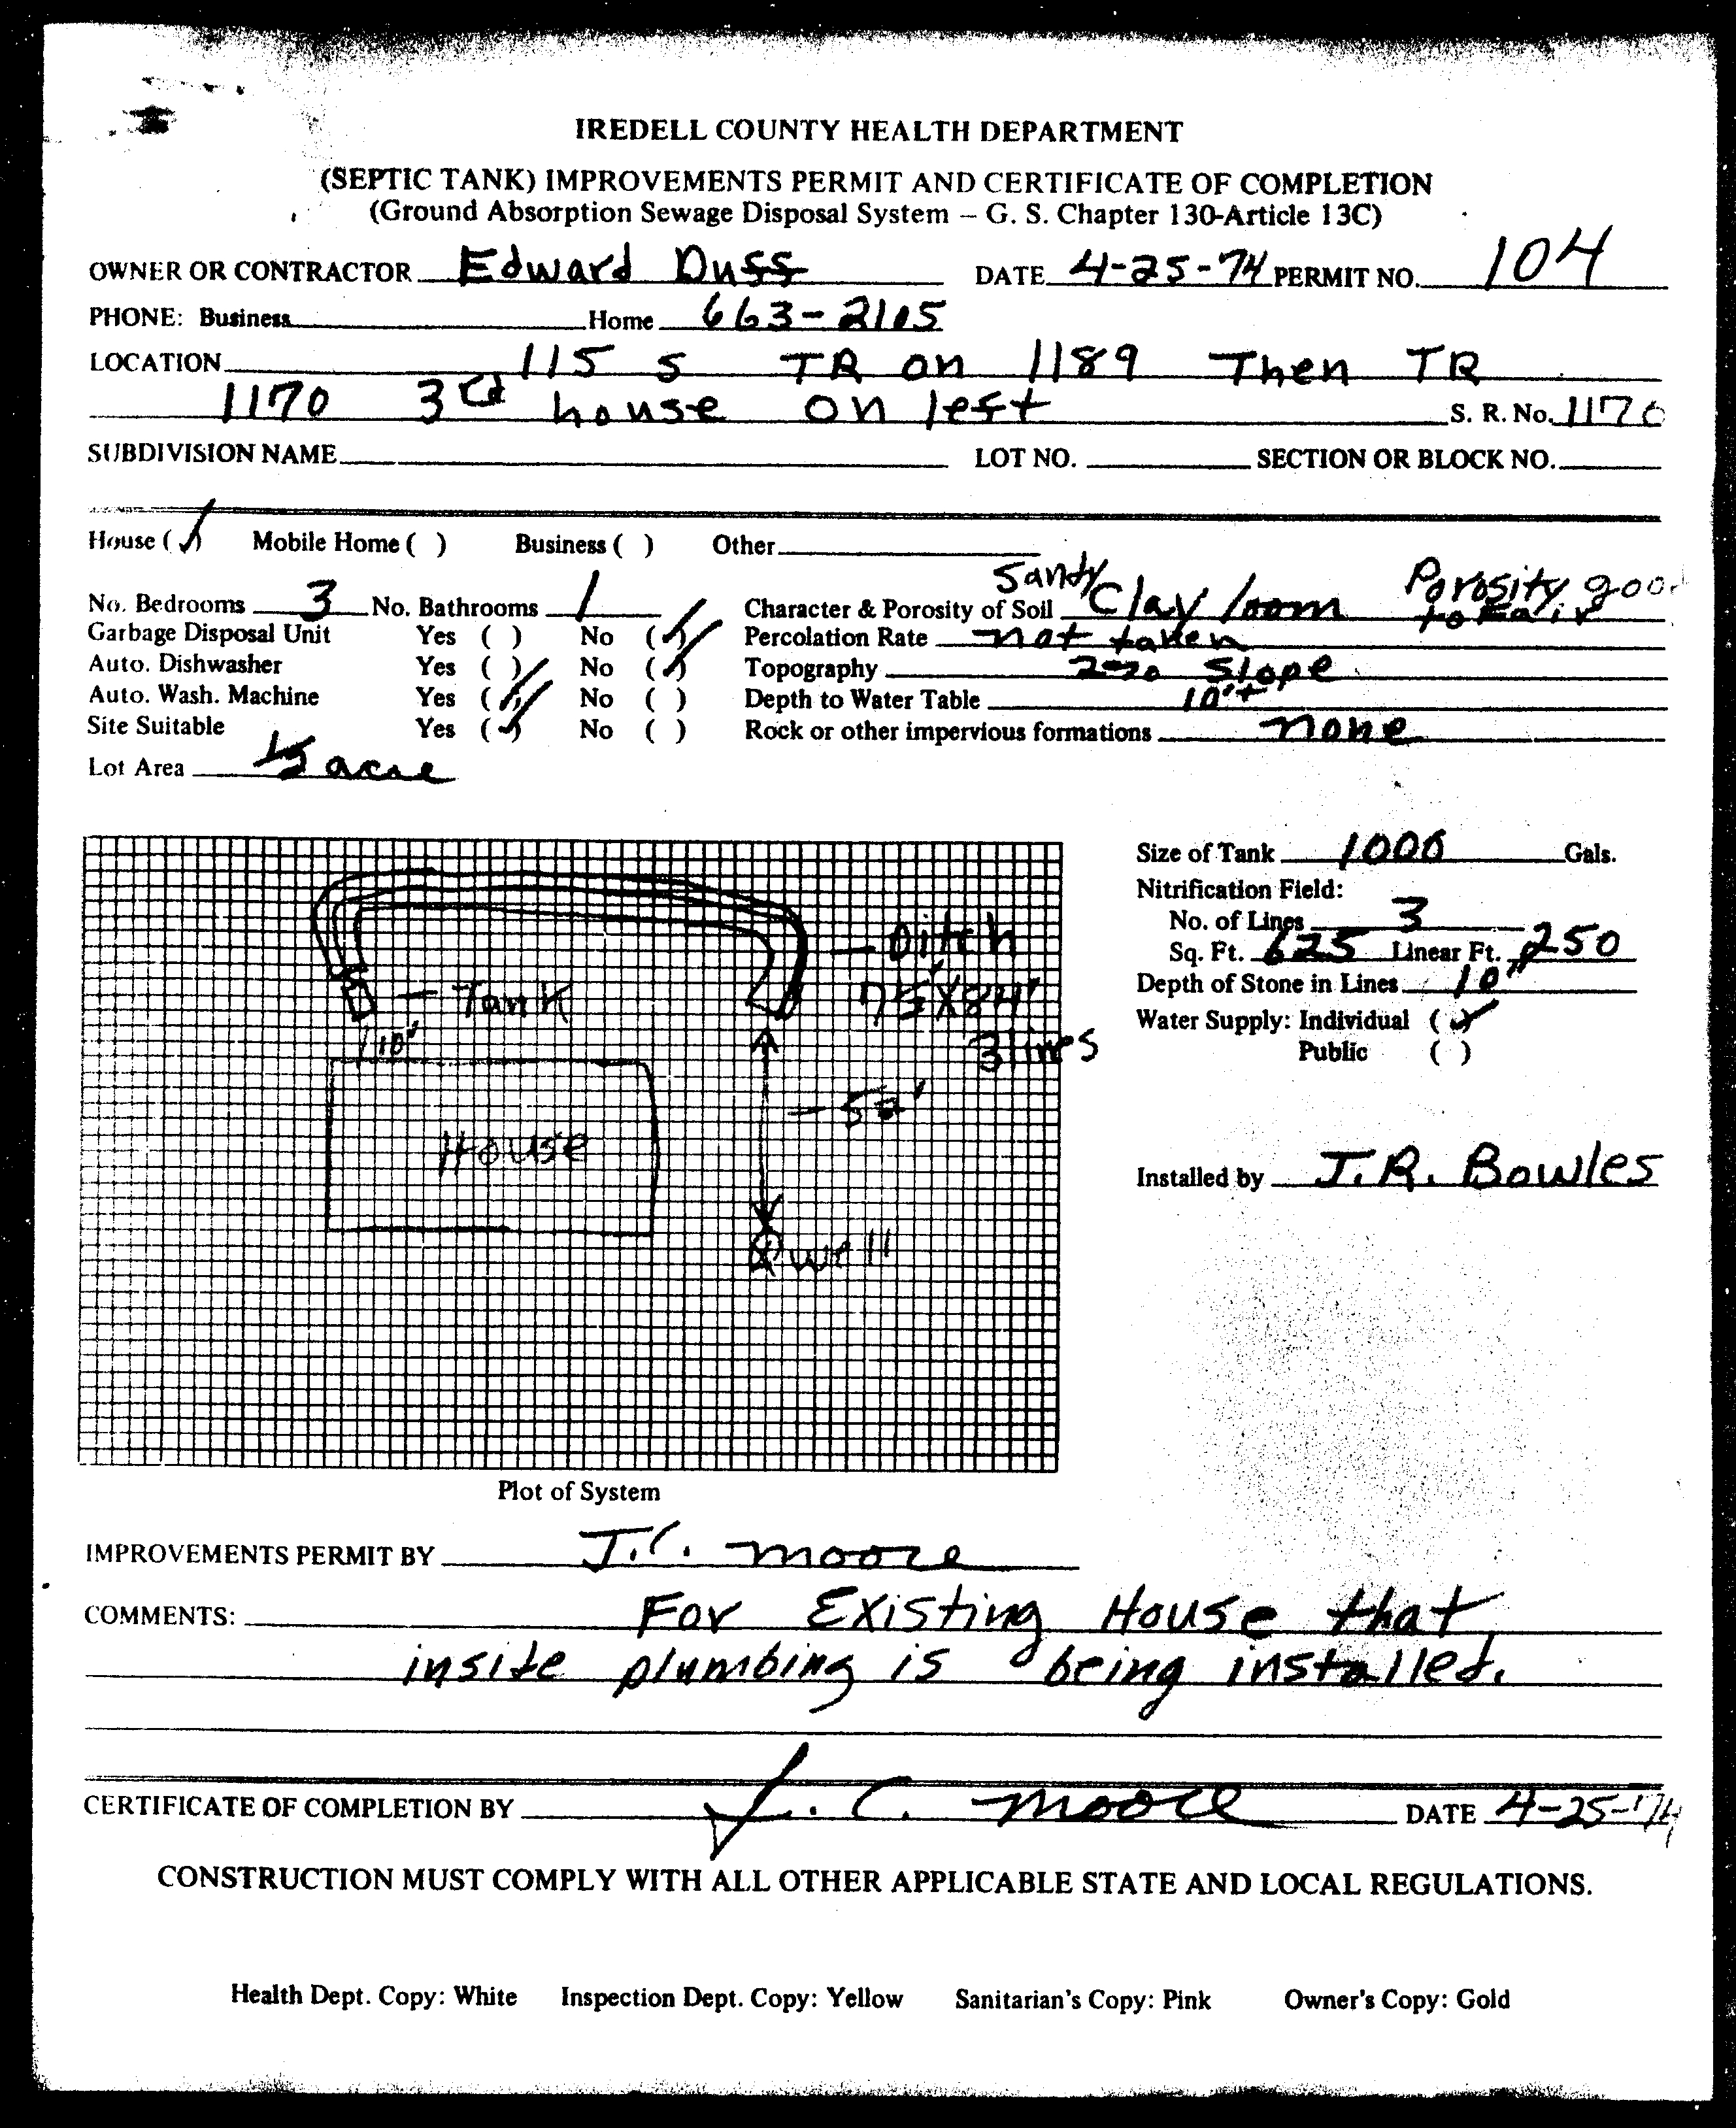 IREDELL COUNTY HEALTH DEPARTMENT
(SEPTIC TANK) IMPROVEMENTS PERMIT AND CERTIFICATE OF COMPLETION
(Ground Absorption Sewage Disposal System – G. S. Chapter 130-Article 13C)
OWNER OR CONTRACTOR Edward Duff DATE 4-25-74 PERMIT NO. 104
PHONE: Business Home 663-2105
LOCATION 115 S TR on 1189 Then TR
1170 3rd house on left S. R. No. 1170
SUBDIVISION NAME LOT NO. SECTION OR BLOCK NO.
House (✓) Mobile Home ( ) Business ( ) Other
No. Bedrooms 3 No. Bathrooms 1 Character & Porosity of Soil Sandy Clay loom Porosity good to Fair
Garbage Disposal Unit Yes ( ) No (✓) Percolation Rate not taken
Auto. Dishwasher Yes ( ) No (✓) Topography slope
Auto. Wash. Machine Yes (✓) No ( ) Depth to Water Table 10'+
Site Suitable Yes (✓) No ( ) Rock or other impervious formations none
Lot Area ½ acre
Size of Tank 1000 Gals.
Nitrification Field:
No. of Lines 3
Sq. Ft. 625 Linear Ft. 250
Depth of Stone in Lines 10"
Water Supply: Individual (✓)
Public ( )
Installed by J.R. Bowles
– Ditch
– Tank
75'X84'
3 lines
10'
– 50'
House
well
Plot of System
IMPROVEMENTS PERMIT BY J.C. Moore
COMMENTS: For Existing House that
inside plumbing is being installed.
CERTIFICATE OF COMPLETION BY J. C. Moore DATE 4-25-74
CONSTRUCTION MUST COMPLY WITH ALL OTHER APPLICABLE STATE AND LOCAL REGULATIONS.
Health Dept. Copy: White Inspection Dept. Copy: Yellow Sanitarian's Copy: Pink Owner's Copy: Gold